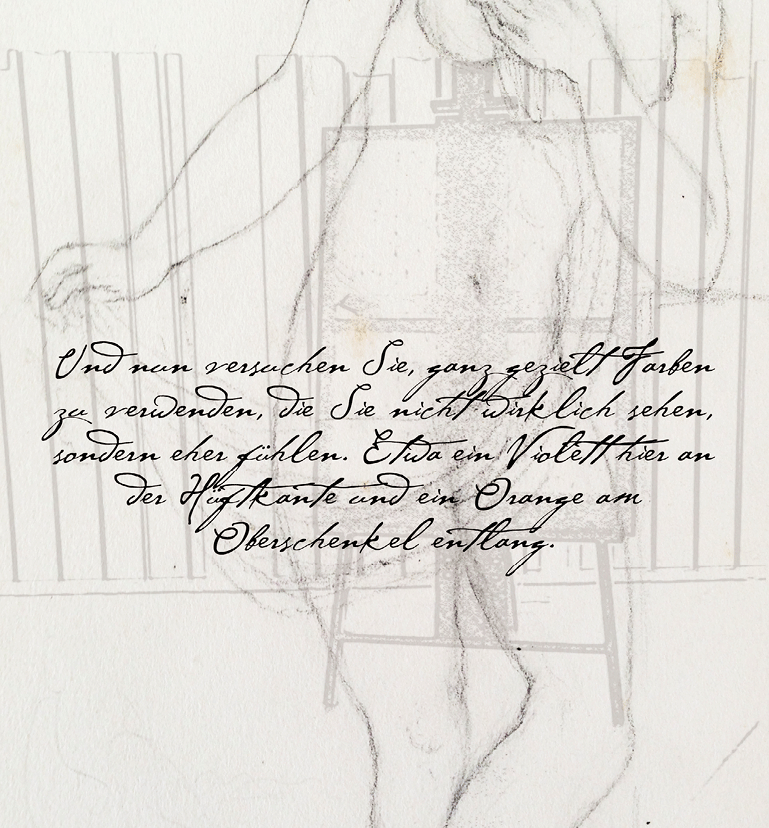 Und nun versuchen Sie, ganz gezielt Farben
zu verwenden, die Sie nicht wirklich sehen,
sondern eher fühlen. Etwa ein Violett hier an
der Hüftkante und ein Orange am
Oberschenkel entlang.